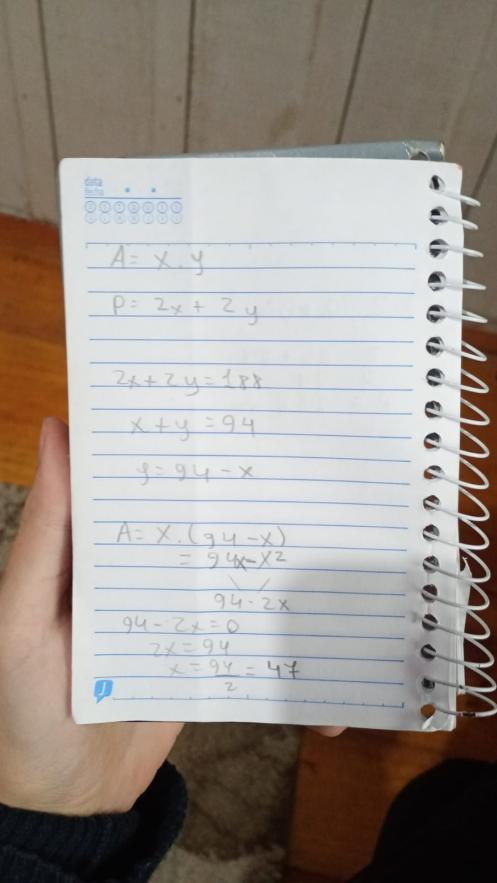 data
fecha
A = x . y
P = 2x + 2y
2x + 2y = 188
x + y = 94
y = 94 - x
A = x . (94 - x)
= 94x - x²
94 - 2x
94 - 2x = 0
2x = 94
x = 94/2 = 47
J